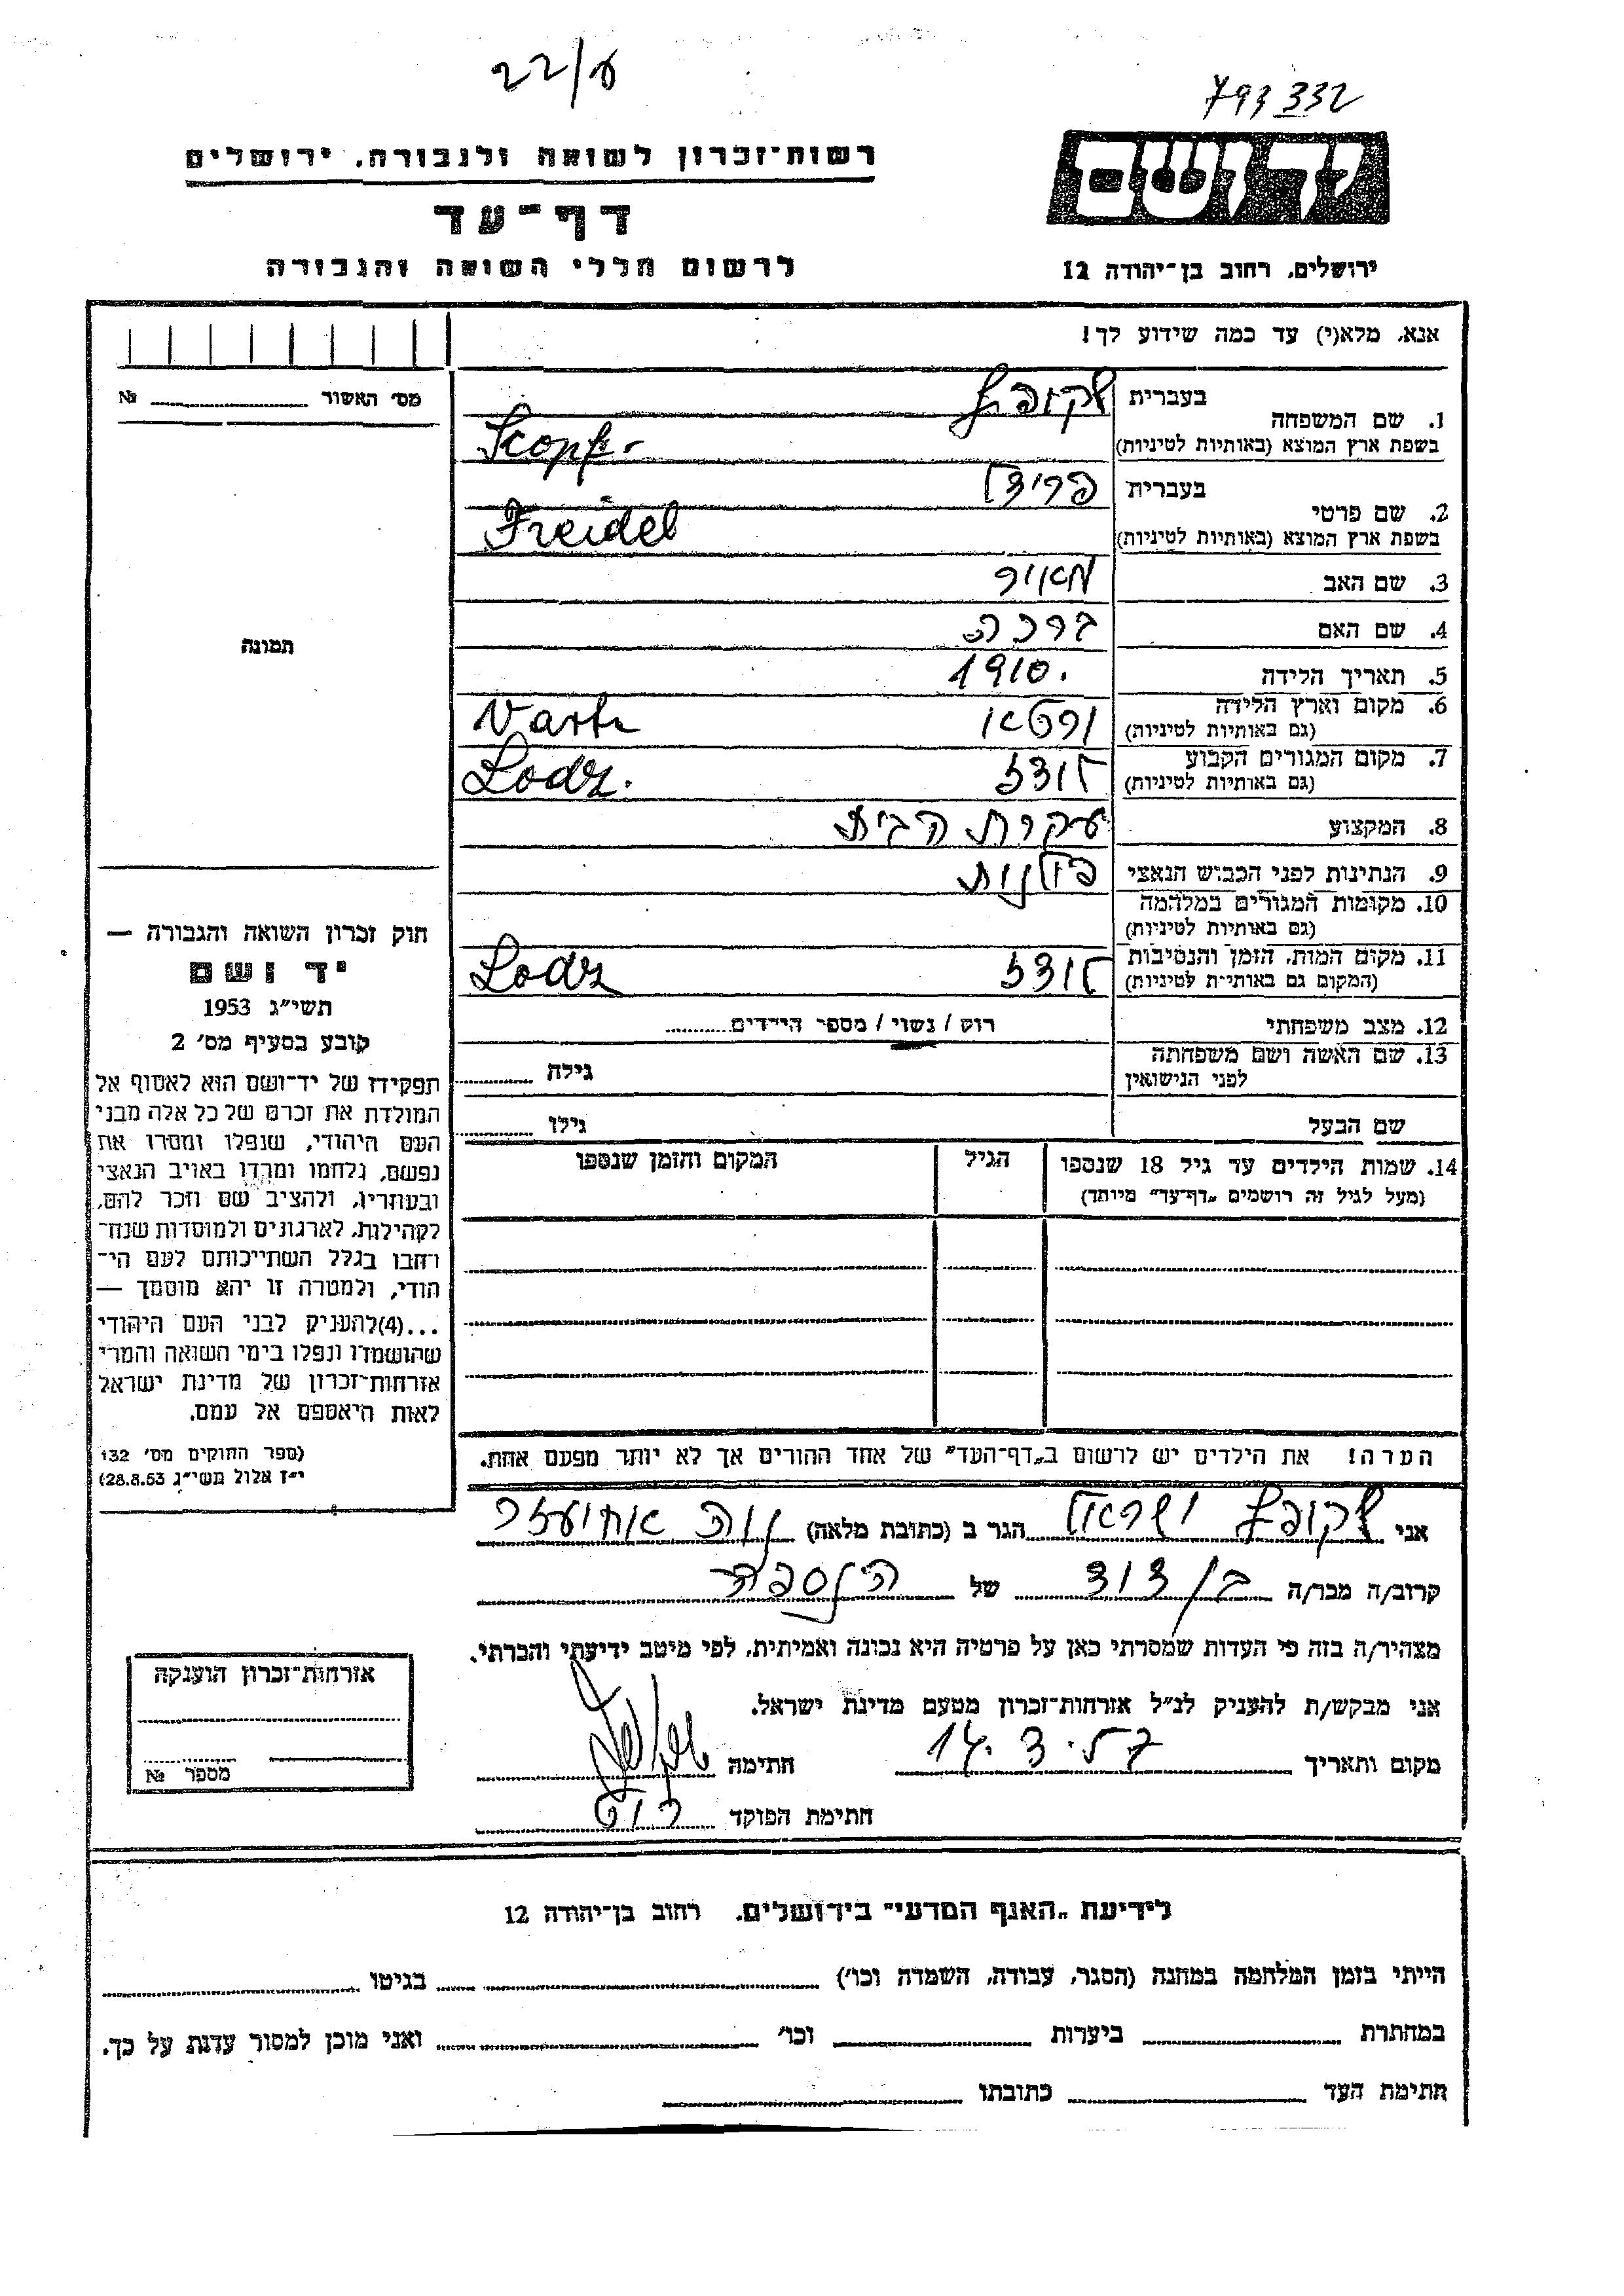 22/ע
793332
רשות-זכרון לשואה ולגבורה, ירושלים
יד ושם
דף-עד
לרשום חללי השואה והגבורה
ירושלים, רחוב בן-יהודה 12
אנא, מלא(י) עד כמה שידוע לך!
מס׳ האשור № 
1. שם המשפחה
בעברית שקופץ
בשפת ארץ המוצא (באותיות לטיניות) Scopf.
2. שם פרטי
בעברית פרידל
בשפת ארץ המוצא (באותיות לטיניות) Freidel
3. שם האב מאיר
4. שם האם ברכה
5. תאריך הלידה 1910.
6. מקום וארץ הלידה
(גם באותיות לטיניות) ורטא Varta
7. מקום המגורים הקבוע
(גם באותיות לטיניות) לודז Lodz.
8. המקצוע עקרת הבית
9. הנתינות לפני הכבוש הנאצי פולנית
10. מקומות המגורים במלחמה
(גם באותיות לטיניות)
11. מקום המות, הזמן והנסיבות
(המקום גם באותיות לטיניות) לודז Lodz
12. מצב משפחתי רוק / נשוי / מספר הילדים
13. שם האשה ושם משפחתה
לפני הנישואין גילה
שם הבעל גילו
14. שמות הילדים עד גיל 18 שנספו הגיל המקום והזמן שנספו
(מעל לגיל זה רושמים „דף-עד” מיוחד)
תמונה
חוק זכרון השואה והגבורה —
יד ושם
תשי״ג 1953
קובע בסעיף מס׳ 2
תפקידו של יד-ושם הוא לאסוף אל
המולדת את זכרם של כל אלה מבני
העם היהודי, שנפלו ומסרו את
נפשם, נלחמו ומרדו באויב הנאצי
ובעוזריו, ולהציב שם וזכר להם,
לקהילות, לארגונים ולמוסדות שנח-
רבו בגלל השתייכותם לעם הי-
הודי, ולמטרה זו יהא מוסמך —
...(4)להעניק לבני העם היהודי
שהושמדו ונפלו בימי השואה והמרי
אזרחות-זכרון של מדינת ישראל
לאות היאספם אל עמם.
(ספר החוקים מס׳ 132
י״ז אלול תשי״ג 28.8.53)
הערה! את הילדים יש לרשום ב„דף-העד” של אחד ההורים אך לא יותר מפעם אחת.
אני שקופץ ישראל הגר ב (כתובת מלאה) נוה אחיעזר
קרוב/ה מכר/ה בן דוד של הנספה
מצהיר/ה בזה כי העדות שמסרתי כאן על פרטיה היא נכונה ואמיתית, לפי מיטב ידיעתי והכרתי.
אני מבקש/ת להעניק לנ״ל אזרחות-זכרון מטעם מדינת ישראל.
מקום ותאריך 14.3.57 חתימה
חתימת הפוקד
אזרחות-זכרון הוענקה
מספר №
לידיעת „האגף המדעי” בירושלים, רחוב בן-יהודה 12
הייתי בזמן המלחמה במחנה (הסגר, עבודה, השמדה וכו׳) בגיטו
במחתרת ביערות וכו׳ ואני מוכן למסור עדות על כך.
חתימת העד כתובתו